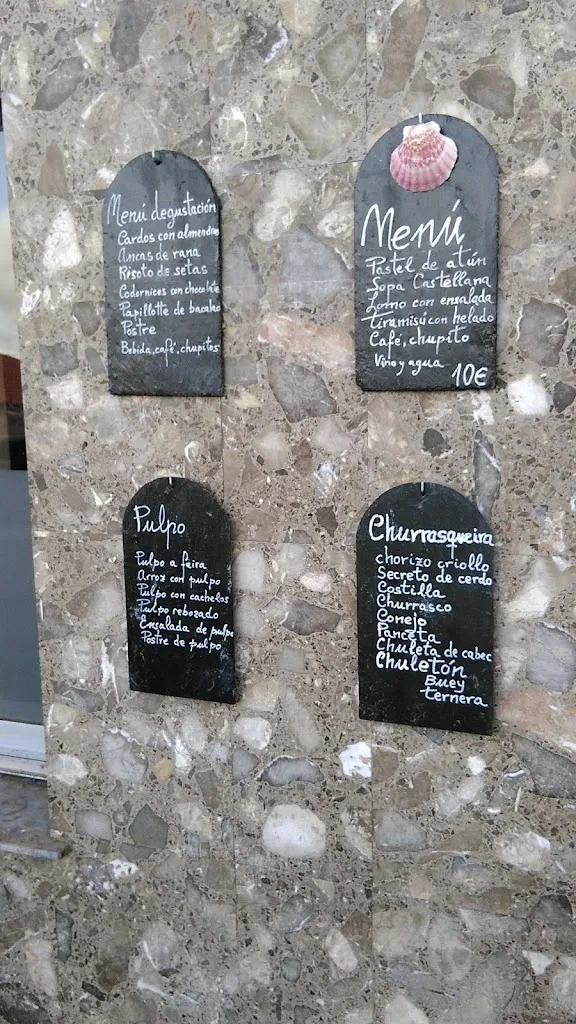 Menú degustación
Cardos con almendras
Ancas de rana
Risoto de setas
Codornices con chocolate
Papillotte de bacalao
Postre
Bebida, café, chupitos
Menú
Pastel de atún
Sopa Castellana
Lomo con ensalada
Tiramisú con helado
Café, chupito
Vino y agua
10€
Pulpo
Pulpo a feira
Arroz con pulpo
Pulpo con cachelos
Pulpo rebozado
Ensalada de pulpo
Postre de pulpo
Churrasqueira
chorizo criollo
Secreto de cerdo
Costilla
Churrasco
Conejo
Panceta
Chuleta de cabec
Chuletón
Buey
ternera